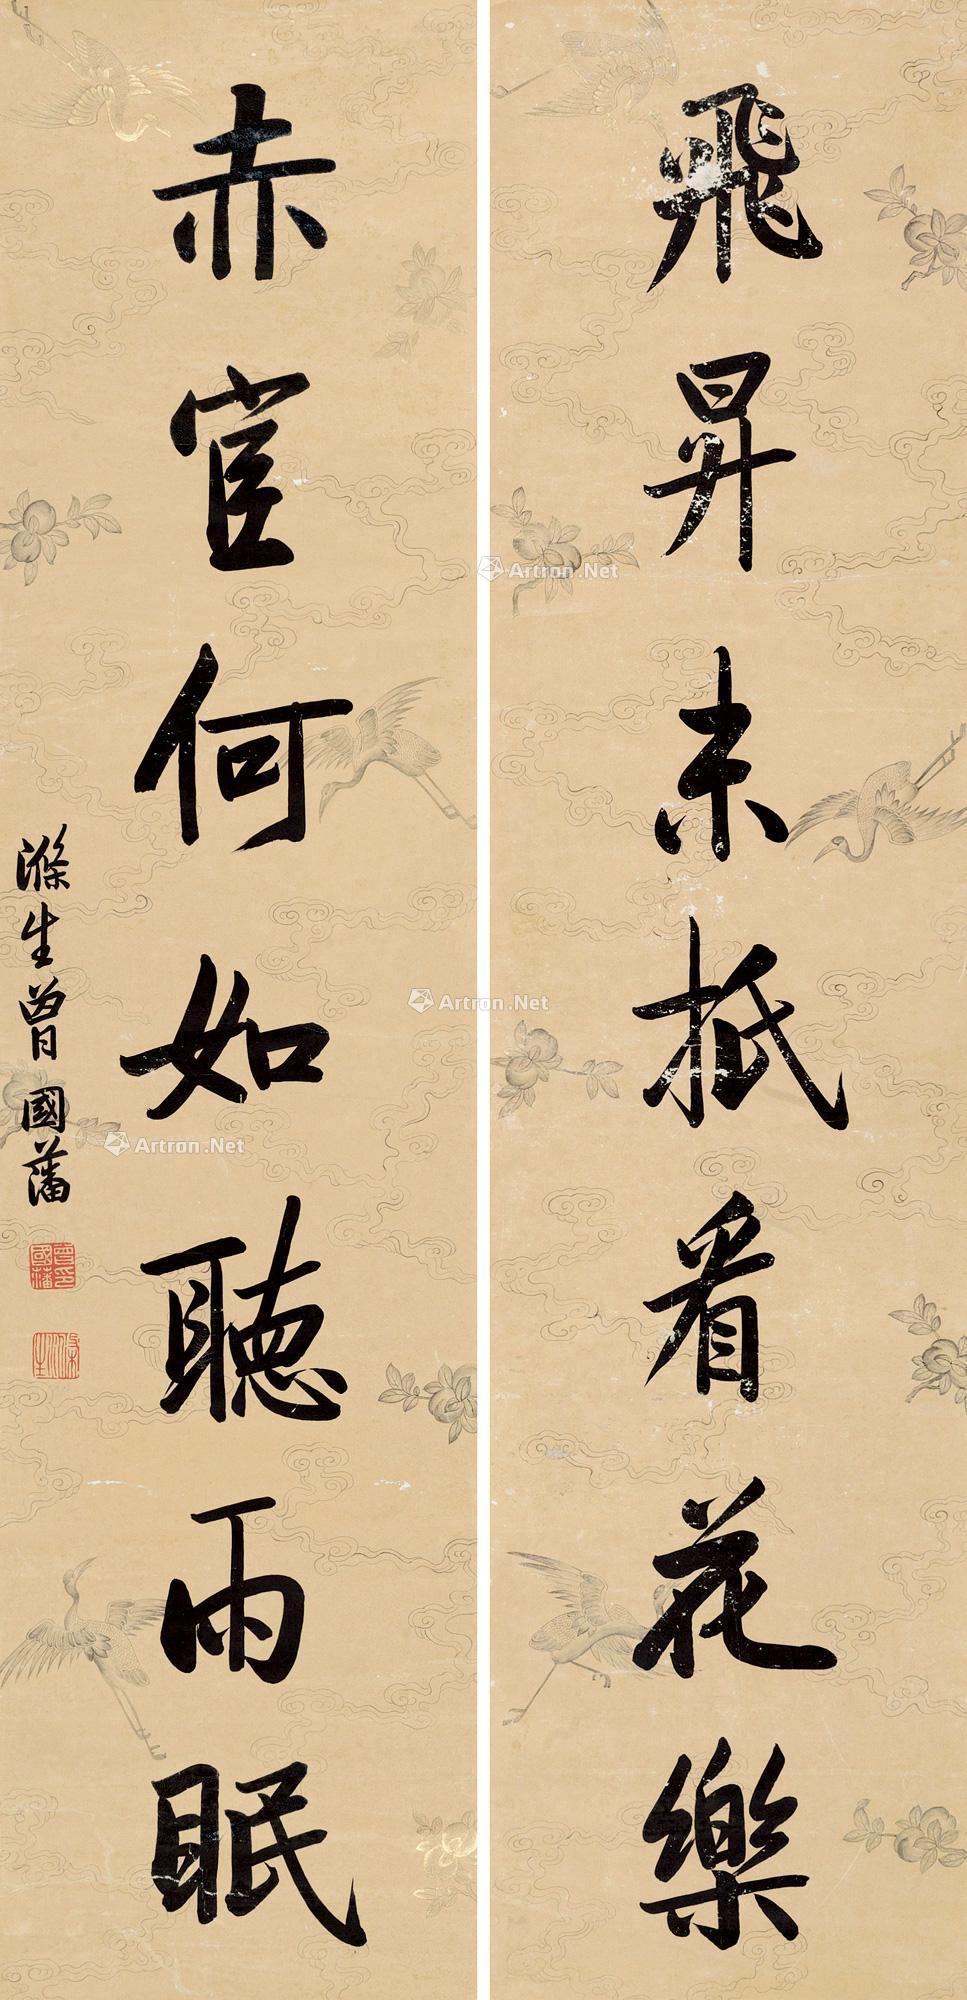 飛昇未抵看花樂
赤宦何如聽雨眠
滌生曾國藩
曾國藩印
滌生
Artron.Net
Artron.Net
Artron.Net